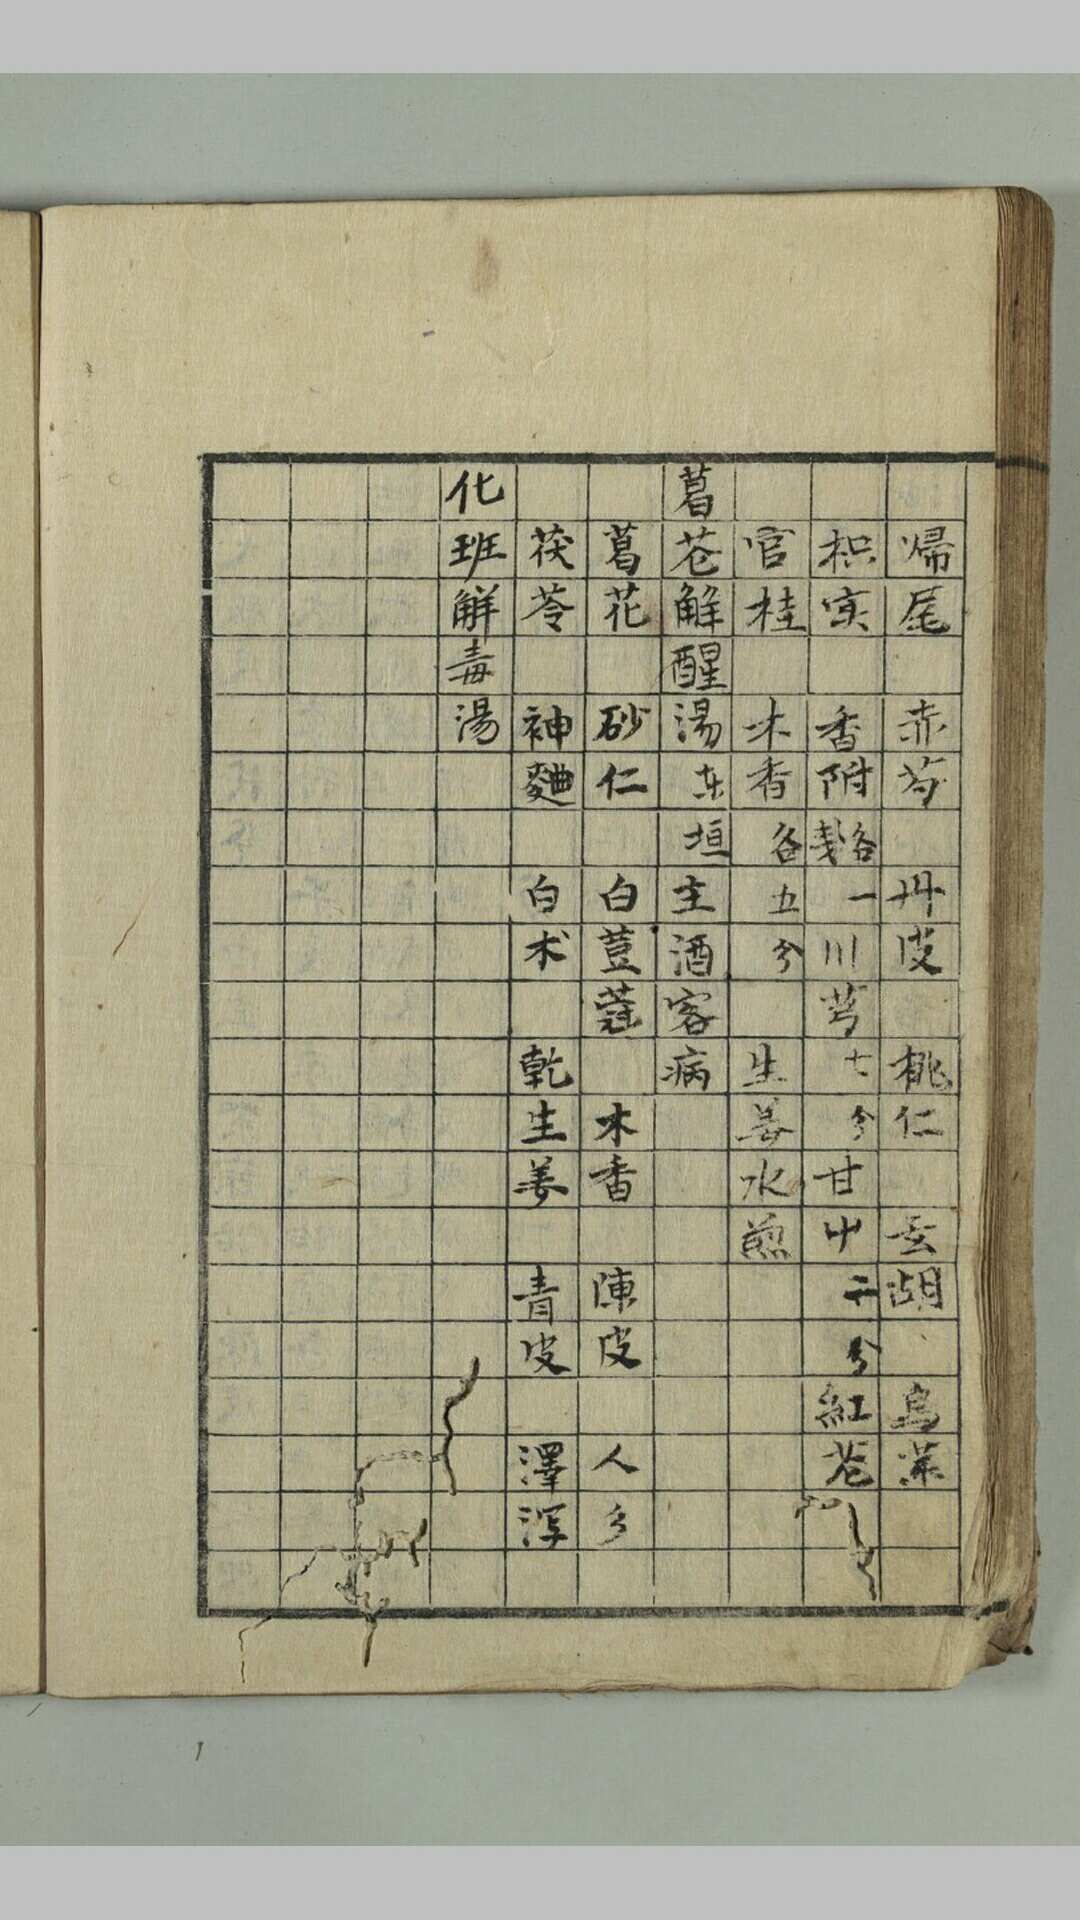 帰尾 赤芍 丹皮 桃仁 玄胡 烏藥
枳實 香附 各一戔 川芎 七分 甘中 二分 紅花
官桂 木香 各五分 生姜水煎
葛花解醒湯 东垣 主酒客病
葛花 砂仁 白荳蔻 木香 陳皮 人参
茯苓 神麯 白术 乾生姜 青皮 澤泻
化班解毒湯